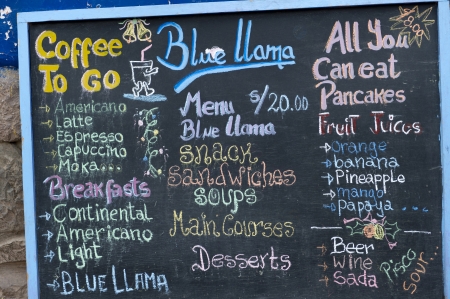 Coffee
To Go
Americano
Latte
Espresso
Capuccino
Moka...
Breakfasts
Continental
Americano
Light
BLUE LLAMA
Blue llama
Menu S/20.00
Blue llama
SNACK
Sandwiches
SOUPS
Main Courses
Desserts
All You
Can eat
Pancakes
Fruit Juices
orange
banana
Pineapple
mango
Papaya ...
Beer
Wine
Soda
Pisco
Sour